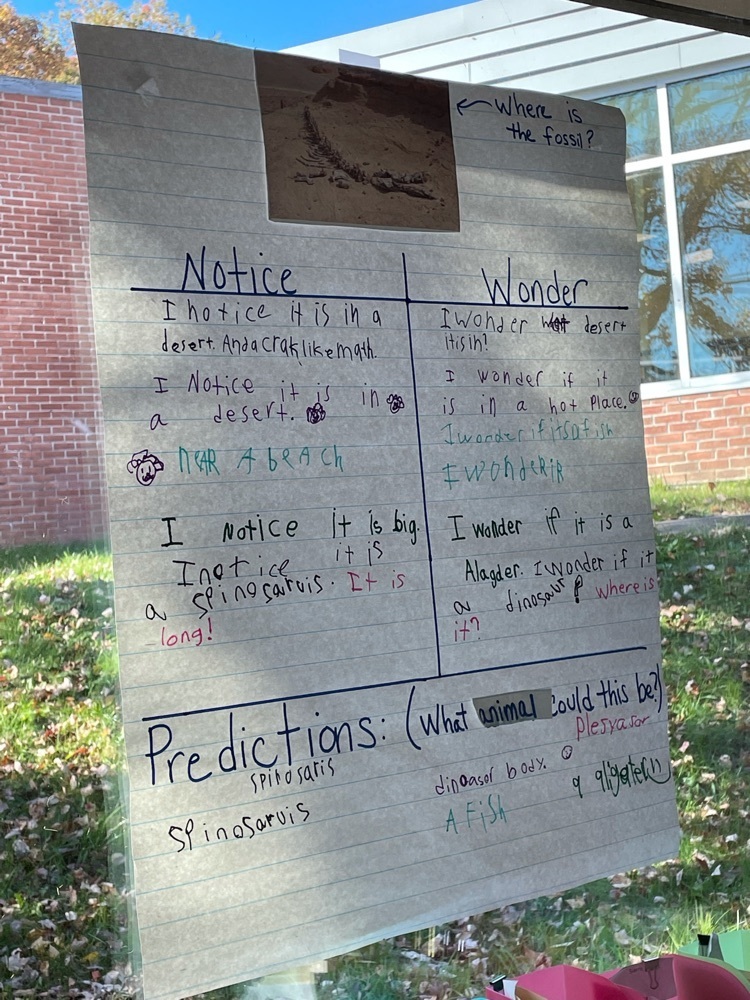 Where is
the fossil?
Notice
I notice it is in a
desert. And a crak like math.
I Notice it is in
a desert.
neAR A beAch
I notice it is big.
I notice it is
a spinosarvis. It is
long!
Wonder
I wonder wat desert
it is in?
I wonder if it
is in a hot Place.
I wonder if its a fish
I WONdeRiR
I wonder if it is a
Alagder. I wonder if it
a dinosaur? where is
it?
Predictions: (What animal could this be?)
spinosaris
Spinosarvis
dinoasor body.
A Fish
Plesyasor
a aligater